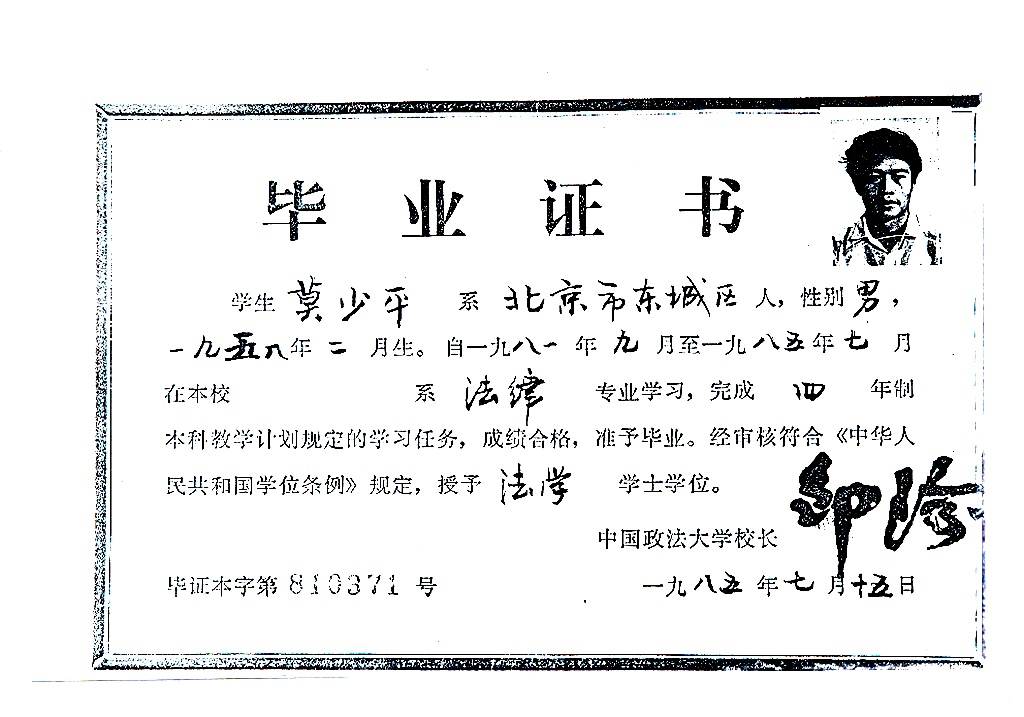 毕业证书
学生 莫少平 系 北京市东城区 人，性别 男，
一九五八年 二 月生。自一九八一 年 九 月至一九八五年 七 月
在本校 系 法律 专业学习，完成 四 年制
本科教学计划规定的学习任务，成绩合格，准予毕业。经审核符合《中华人
民共和国学位条例》规定，授予 法学 学士学位。
中国政法大学校长
毕证本字第 810371 号 一九八五 年 七 月 十五 日